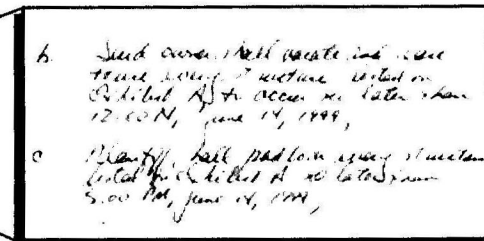 b. Said owner shall vacate and
every structure listed on
Exhibit A, to occur no later than
12:00 N, June 14, 1999,
c Plaintiff shall padlock every structure
listed on Exhibit A no later than
5:00 PM, June 14, 1999,